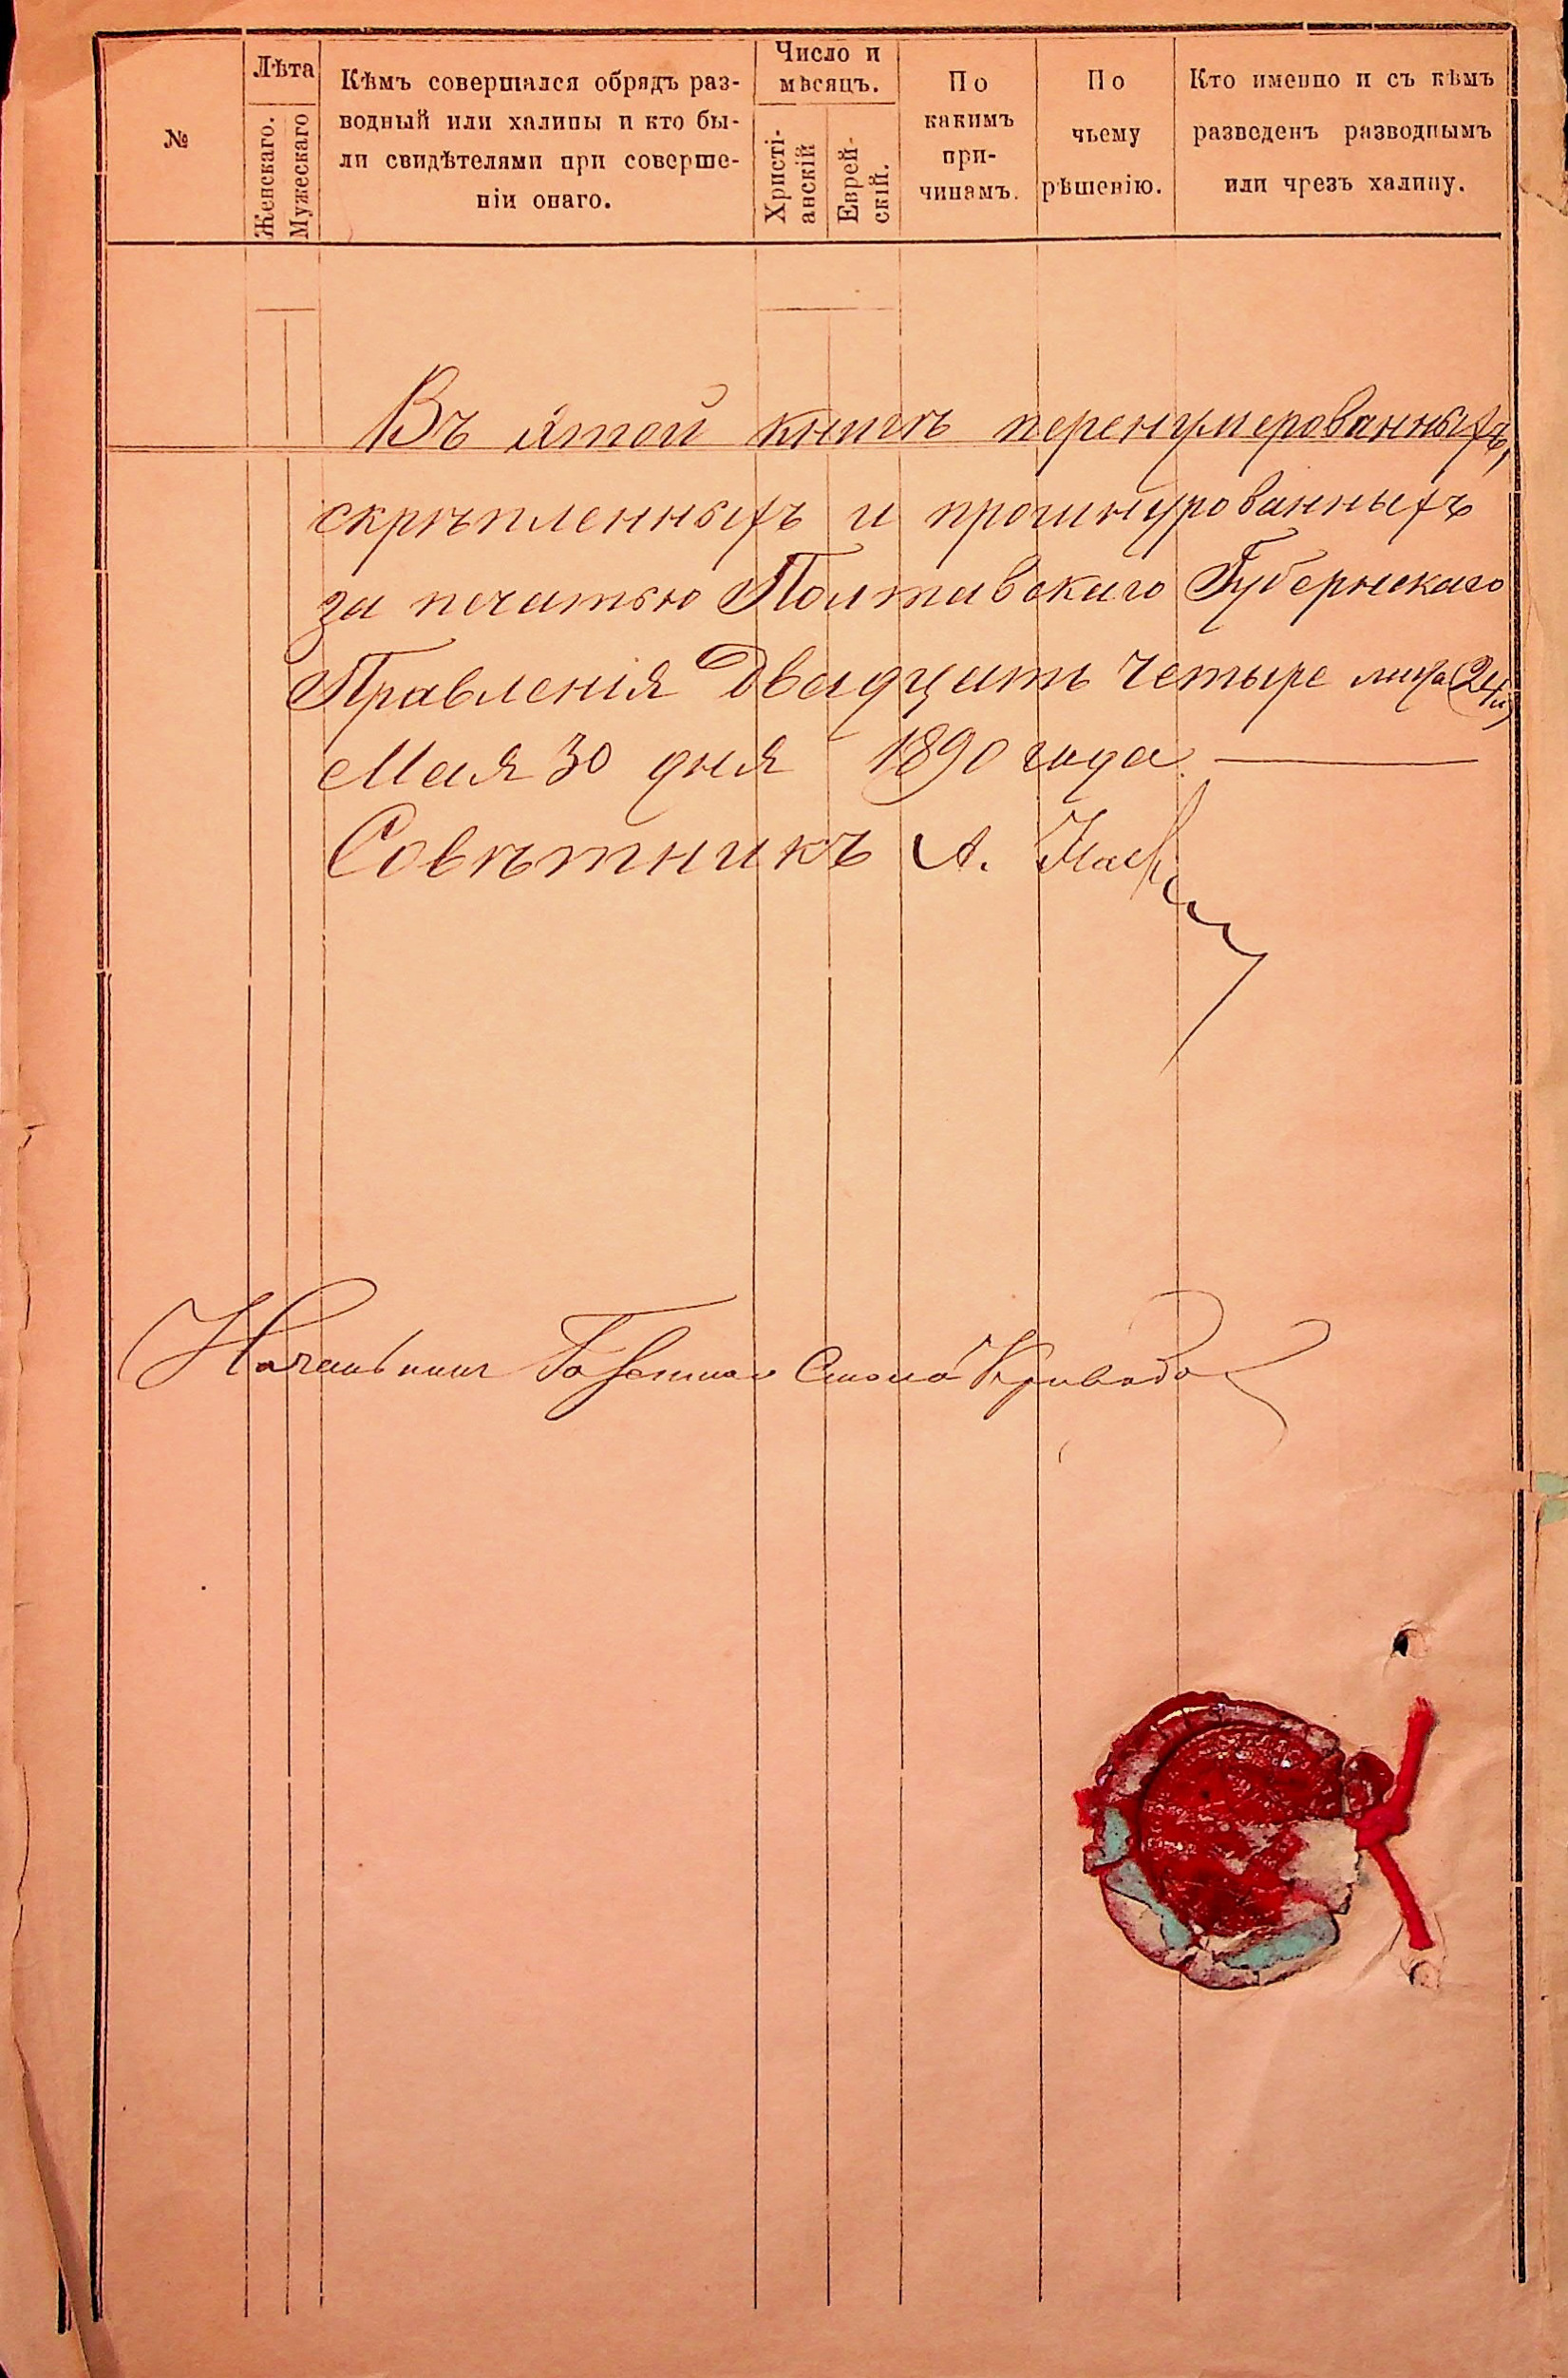 №
Лѣта
Женскаго.
Мужескаго
Кѣмъ совершался обрядъ раз-
водный или халицы и кто бы-
ли свидѣтелями при соверше-
ніи онаго.
Число и
мѣсяцъ.
Христі-
анскій
Еврей-
скій.
По
какимъ
при-
чинамъ.
По
чьему
рѣшенію.
Кто именно и съ кѣмъ
разведенъ разводнымъ
или чрезъ халицу.
Въ этой книгѣ перенумерованныхъ,
скрѣпленныхъ и прошнурованныхъ
за печатью Полтавскаго Губернскаго
Правленія Двадцать Четыре листа (24 л)
Мая 30 дня 1890 года.
Совѣтникъ А.
Начальникъ Газетнаго Стола